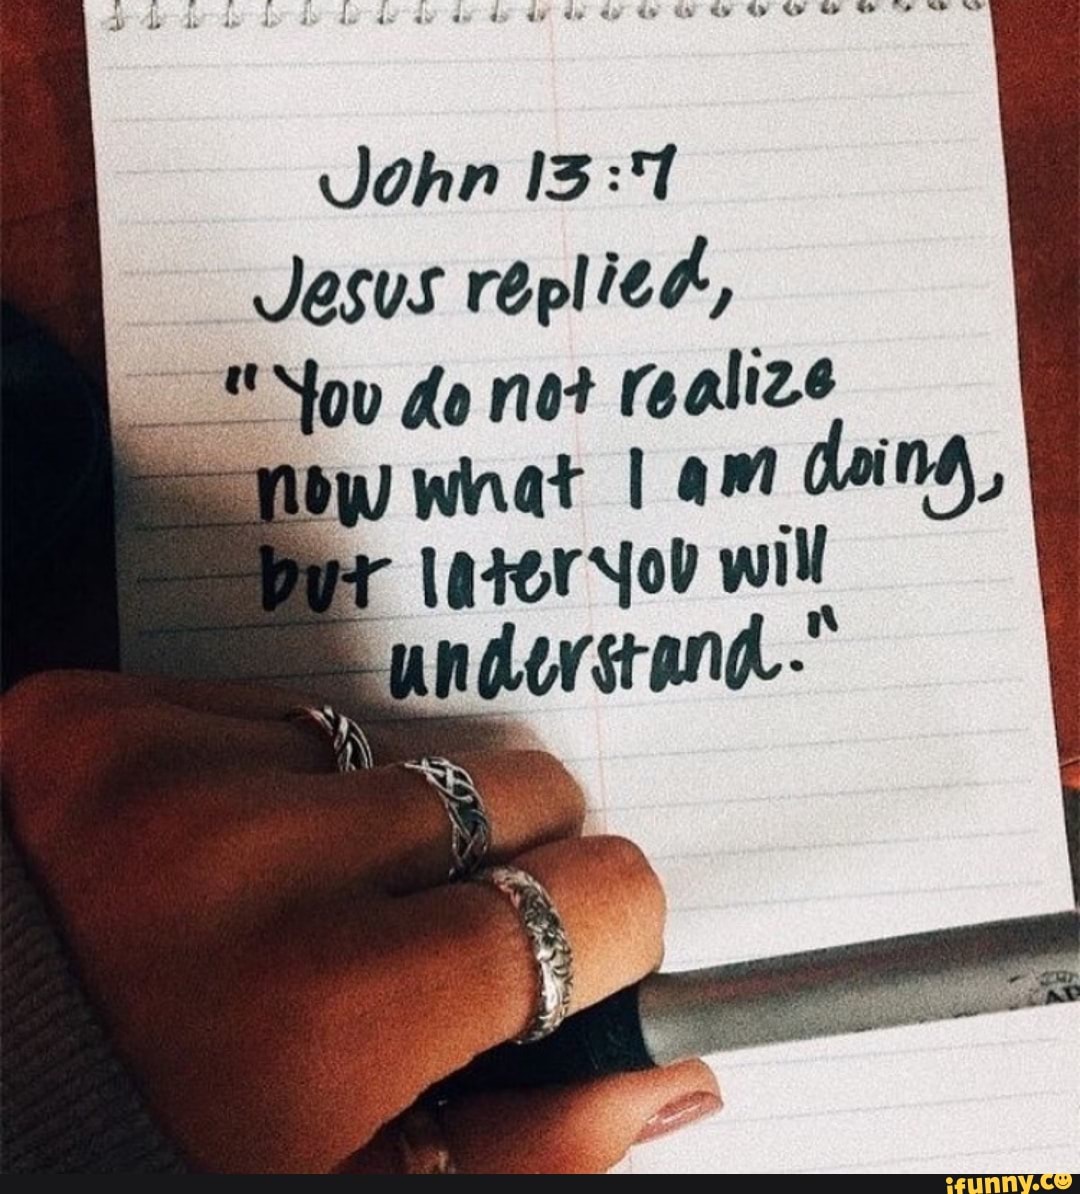 John 13:7
Jesus replied,
"You do not realize
now what I am doing,
but later you will
understand."
AP
ifunny.co